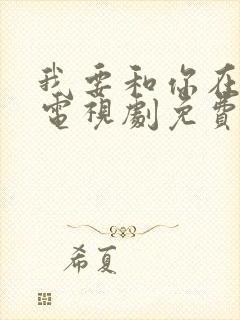 我要和你在
電視劇免費
希夏